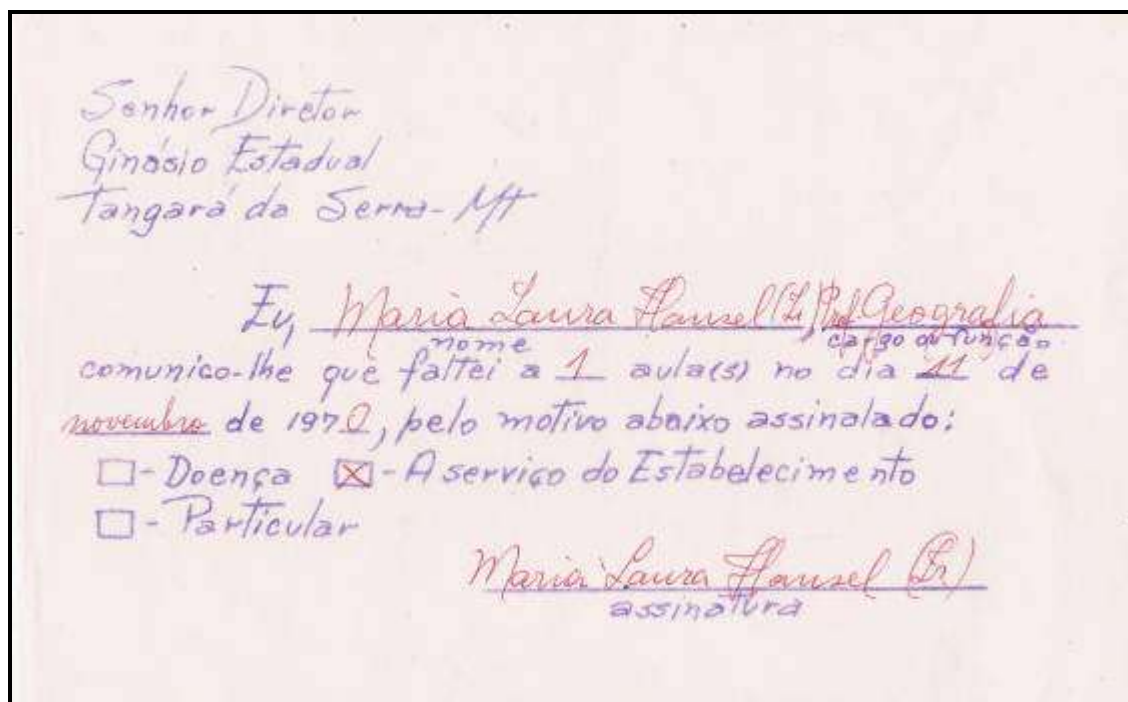 Senhor Diretor
Ginásio Estadual
Tangará da Serra - Mt
Eu, Maria Laura Hansel (Ir) Prof. Geografia
nome cargo ou função
comunico-lhe que faltei a 1 aula(s) no dia 11 de
novembro de 1970, pelo motivo abaixo assinalado:
- Doença - A serviço do Estabelecimento
- Particular
Maria Laura Hansel (Ir)
assinatura